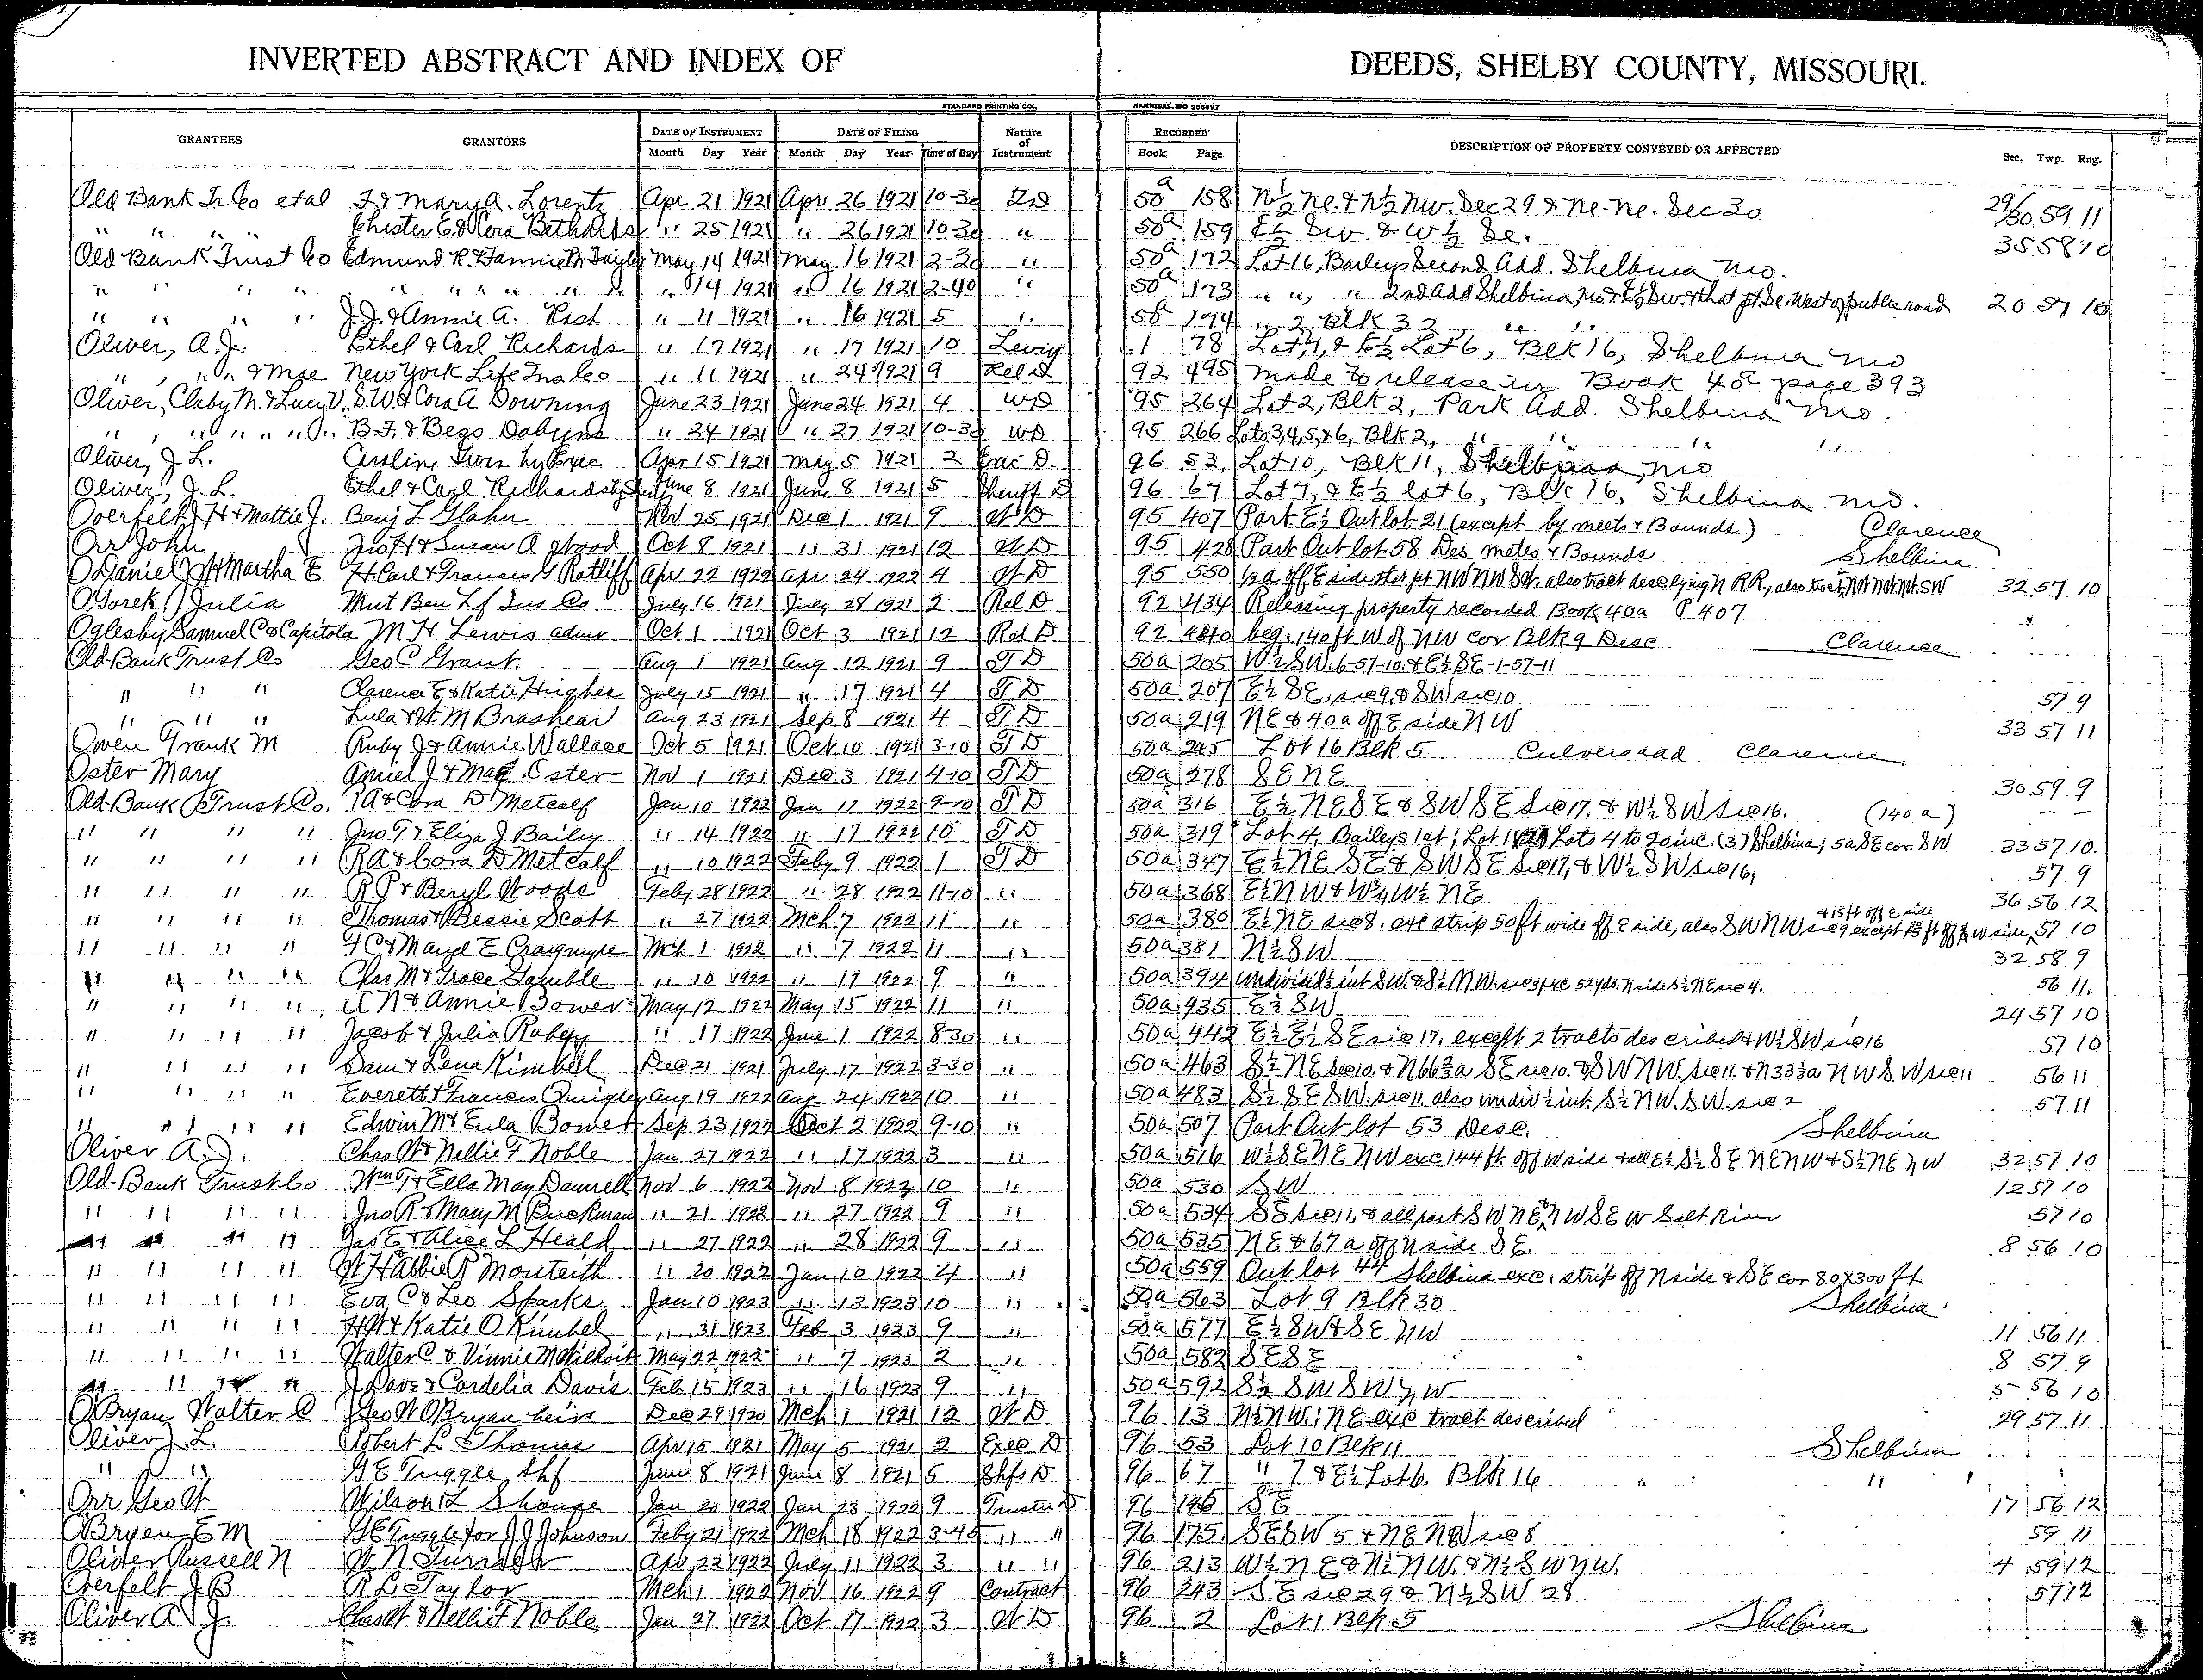 INVERTED ABSTRACT AND INDEX OF DEEDS, SHELBY COUNTY, MISSOURI.
STANDARD PRINTING CO., HANNIBAL, MO 256697
GRANTEES GRANTORS DATE OF INSTRUMENT DATE OF FILING Nature of Instrument RECORDED DESCRIPTION OF PROPERTY CONVEYED OR AFFECTED Sec. Twp. Rng.
Month Day Year Month Day Year Time of Day Book Page
Old Bank Tr. Co et al F. & Mary A. Lorentz Apr 21 1921 Apr 26 1921 10-30 50a 158 N½ Ne. & N½ Nw. Sec 29 & Ne-Ne. Sec 30 29/30 59 11
" " " " Chester E. & Cora Bethards " 25 1921 " 26 1921 10-30 " 50a 159 E½ Sw. & W½ Se. 35 58 10
Old Bank Trust Co Edmund R. & Fannie B. Taylor May 14 1921 May 16 1921 2-30 " 50a 172 Lot 16, Baileys Second Add. Shelbina Mo.
" " " " " " " " " 14 1921 " 16 1921 2-40 " 50a 173 " " " 2nd Add Shelbina, Mo & E½ Sw. & that pt. Se. West of public road 20 57 10
" " " " J.J. & Annie A. Rost " 11 1921 " 16 1921 5 " 50a 174 " 2 Blk 32 " "
Oliver, A.J. Ethel & Carl Richards " 17 1921 " 17 1921 10 Levy 1 78 Lot 7, & E½ Lot 6, Blk 16, Shelbina Mo
" , " " & Mae New York Life Ins Co " 11 1921 " 24 1921 9 Rel D 92 495 Made to release in Book 40a page 393
Oliver, Claby M. & Lucy V. S.W. & Cora A Downing June 23 1921 June 24 1921 4 WD 95 264 Lot 2, Blk 2, Park Add. Shelbina Mo.
" , " " " " " B.F. & Bess Dobyns " 24 1921 " 27 1921 10-30 WD 95 266 Lots 3,4,5,&6, Blk 2, " " " "
Oliver, J L. Caroline by Exec Apr 15 1921 May 5 1921 2 Exec D. 96 53 Lot 10, Blk 11, Shelbina, Mo
Oliver, J. L. Ethel & Carl Richards by June 8 1921 June 8 1921 5 Sheriff D 96 67 Lot 7, & E½ lot 6, Blk 16, Shelbina Mo.
Overfelt J H & Mattie J. Benj L Glahn Nov 25 1921 Dec 1 1921 9 W D 95 407 Part E½ Outlot 21 (except by meets & Bounds) Clarence
Orr John Jno H & Susan A Wood Oct 8 1921 " 31 1921 12 W D 95 428 Part Out lot 58 Des metes & Bounds Shelbina
O'Daniel J H & Martha E H. Carl & Frances G Ratliff Apr 22 1922 Apr 24 1922 4 W D 95 550 32 57 10
Julia Mut Ben Lf Ins Co July 16 1921 July 28 1921 2 Rel D 92 434 Releasing property recorded Book 40a P 407
Oglesby Samuel C & Capitola M H Lewis admr Oct 1 1921 Oct 3 1921 12 Rel D 92 beg. 140 ft W of NW cor Blk 9 Desc Clarence
Old Bank Trust Co Geo C Grant Aug 1 1921 Aug 12 1921 9 T D 50a 205 W½ SW. 6-57-10. & E½ SE-1-57-11
" " " Clarence E & Katie Hughes July 15 1921 " 17 1921 4 T D 50a 207 E½ SE, sec 9, & SW sec 10 57 9
" " " Lula & W. M Brashear Aug 23 1921 Sep. 8 1921 4 T D 50a 219 NE & 40 a off E side NW 33 57 11
Owen Frank M Ruby J & Annie Wallace Oct 5 1921 Oct 10 1921 3-10 T D 50a 245 Lot 16 Blk 5 Culvers add Clarence
Oster Mary J & Mae Oster Nov 1 1921 Dec 3 1921 4-10 T D 50a 278 SE NE 30 59 9
Old Bank Trust Co. R A & Cora D Metcalf Jan 10 1922 Jan 17 1922 9-10 T D 50a 316 E½ NE SE & SW SE Sec 17, & W½ SW Sec 16. (140 a) — —
" " " " Jno T & Eliza J Baily " 14 1922 " 17 1922 10 T D 50a 319 33 57 10.
" " " " R A & Cora D Metcalf " 10 1922 Feby 9 1922 1 T D 50a 347 E½ NE SE & SW SE Sec 17, & W½ SW sec 16, 57 9
" " " " R P & Beryl Woods Feby 28 1922 " 28 1922 11-10 " 50a 368 E½ NW & W¾ W½ NE 36 56 12
" " " " Thomas & Bessie Scott " 27 1922 Mch 7 1922 11 " 50a 380 E½ NE sec 8. exc strip 50 ft wide off E side, also SW NW sec 9 except ft off W side & 15 ft off E side 57 10
" " " " F C & Mayd E Craigmyle Mch 1 1922 " 7 1922 11 " 50a 381 N½ SW 32 58 9
" " " " Chas M & Grace Gamble " 10 1922 " 17 1922 9 " 50a 394 56 11.
" " " " A N & Annie Bower May 12 1922 May 15 1922 11 " 50a 435 E½ SW 24 57 10
" " " " Jacob & Julia " 17 1922 June 1 1922 8-30 " 50a 442 E½ E½ SE sec 17, except 2 tracts described & W½ SW sec 16 57 10
" " " " Sam & Lena Kimbell Dec 21 1921 July 17 1922 3-30 " 50a 463 S½ NE sec 10, & N 66⅔ a SE sec 10. & SW NW. sec 11. & N 33⅓ a NW SW sec 11 56 11
" " " " Everett & Frances Quigley Aug 19 1922 Aug 24 1922 10 " 50a 483 S½ SE SW. sec 11, also undiv ½ int. S½ NW. SW. sec 2 57 11
" " " " Edwin M & Eula Bower Sep. 23 1922 Oct 2 1922 9-10 " 50a 507 Part Out lot 53 Desc. Shelbina
Oliver A. J. Chas W & Nellie F Noble Jan 27 1922 " 17 1922 3 " 50a 516 W½ SE NE NW exc 144 ft. off W side & all E½ S½ SE NE NW & S½ NE NW 32 57 10
Old Bank Trust Co Wm T & Ella May Nov 6 1922 Nov 8 1922 10 " 50a 530 SW 12 57 10
" " " " Jno R & Mary M Buckman " 21 1922 " 27 1922 9 " 50a 534 SE sec 11, & all part SW NE, NW SE W Salt River 57 10
" " " " Jas E & Alice L Heald " 27 1922 " 28 1922 9 " 50a 535 NE & 67 a off N side SE. 8 56 10
" " " " W H Abbie R Monteith " 20 1922 Jan 10 1922 4 " 50a 559 Out lot 44 Shelbina exc. strip off N side & SE cor 80 x 300 ft
" " " " Eva C & Leo Sparks Jan 10 1923 " 13 1923 10 " 50a 563 Lot 9 Blk 30 Shelbina
" " " " H W & Katie O Kimbel " 31 1923 Feb 3 1923 9 " 50a 577 E½ SW & SE NW 11 56 11
" " " " Walter C & Vinnie May 22 1922 " 7 1923 2 " 50a 582 SE SE 8 57 9
" " " " J Dave & Cordelia Davis Feb 15 1923 " 16 1923 9 " 50a 592 S½ SW SW NW 5 56 10
O'Bryan Walter C Geo W O'Bryan heirs Dec 29 1920 Mch 1 1921 12 W D 96 13 N½ NW, NE exc tract described 29 57 11
Oliver J L. Robert L Thomas Apr 15 1921 May 5 1921 2 Exec D 96 53 Lot 10 Blk 11 Shelbina
" " G E Tuggle Shf June 8 1921 June 8 1921 5 Shfs D 96 67 " 7 & E½ Lot 6. Blk 16 " "
Orr Geo W Wilson L Shouse Jan 20 1922 Jan 23 1922 9 Trustee D 96 SE 17 56 12
O'Bryen E M G E Tuggle for J J Johnson Feby 21 1922 Mch 18 1922 3-45 " " 96 175 SE SW 5 & NE NW sec 8 59 11
Oliver Russell N W. N Apr 22 1922 July 11 1922 3 " " 96 213 W½ NE & N½ NW. & N½ SW NW. 4 59 12
Overfelt J B R L Taylor Mch 1 1922 Nov 16 1922 9 Contract 96 243 SE sec 29 & N½ SW 28. 57 12
Oliver A J. Chas W & Nellie F Noble Jan 27 1922 Oct 17 1922 3 W D 96 2 Lot 1 Blk 5 Shelbina